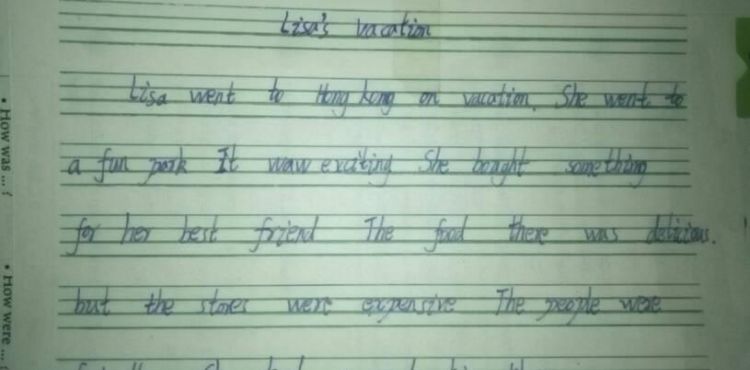 Lisa's vacation
Lisa went to Hong kong on vacation. She went to
a fun park It waw exciting She bought something
for her best friend The food there was delicious.
but the stores were expensive The people were
• How was ...
• How were ...